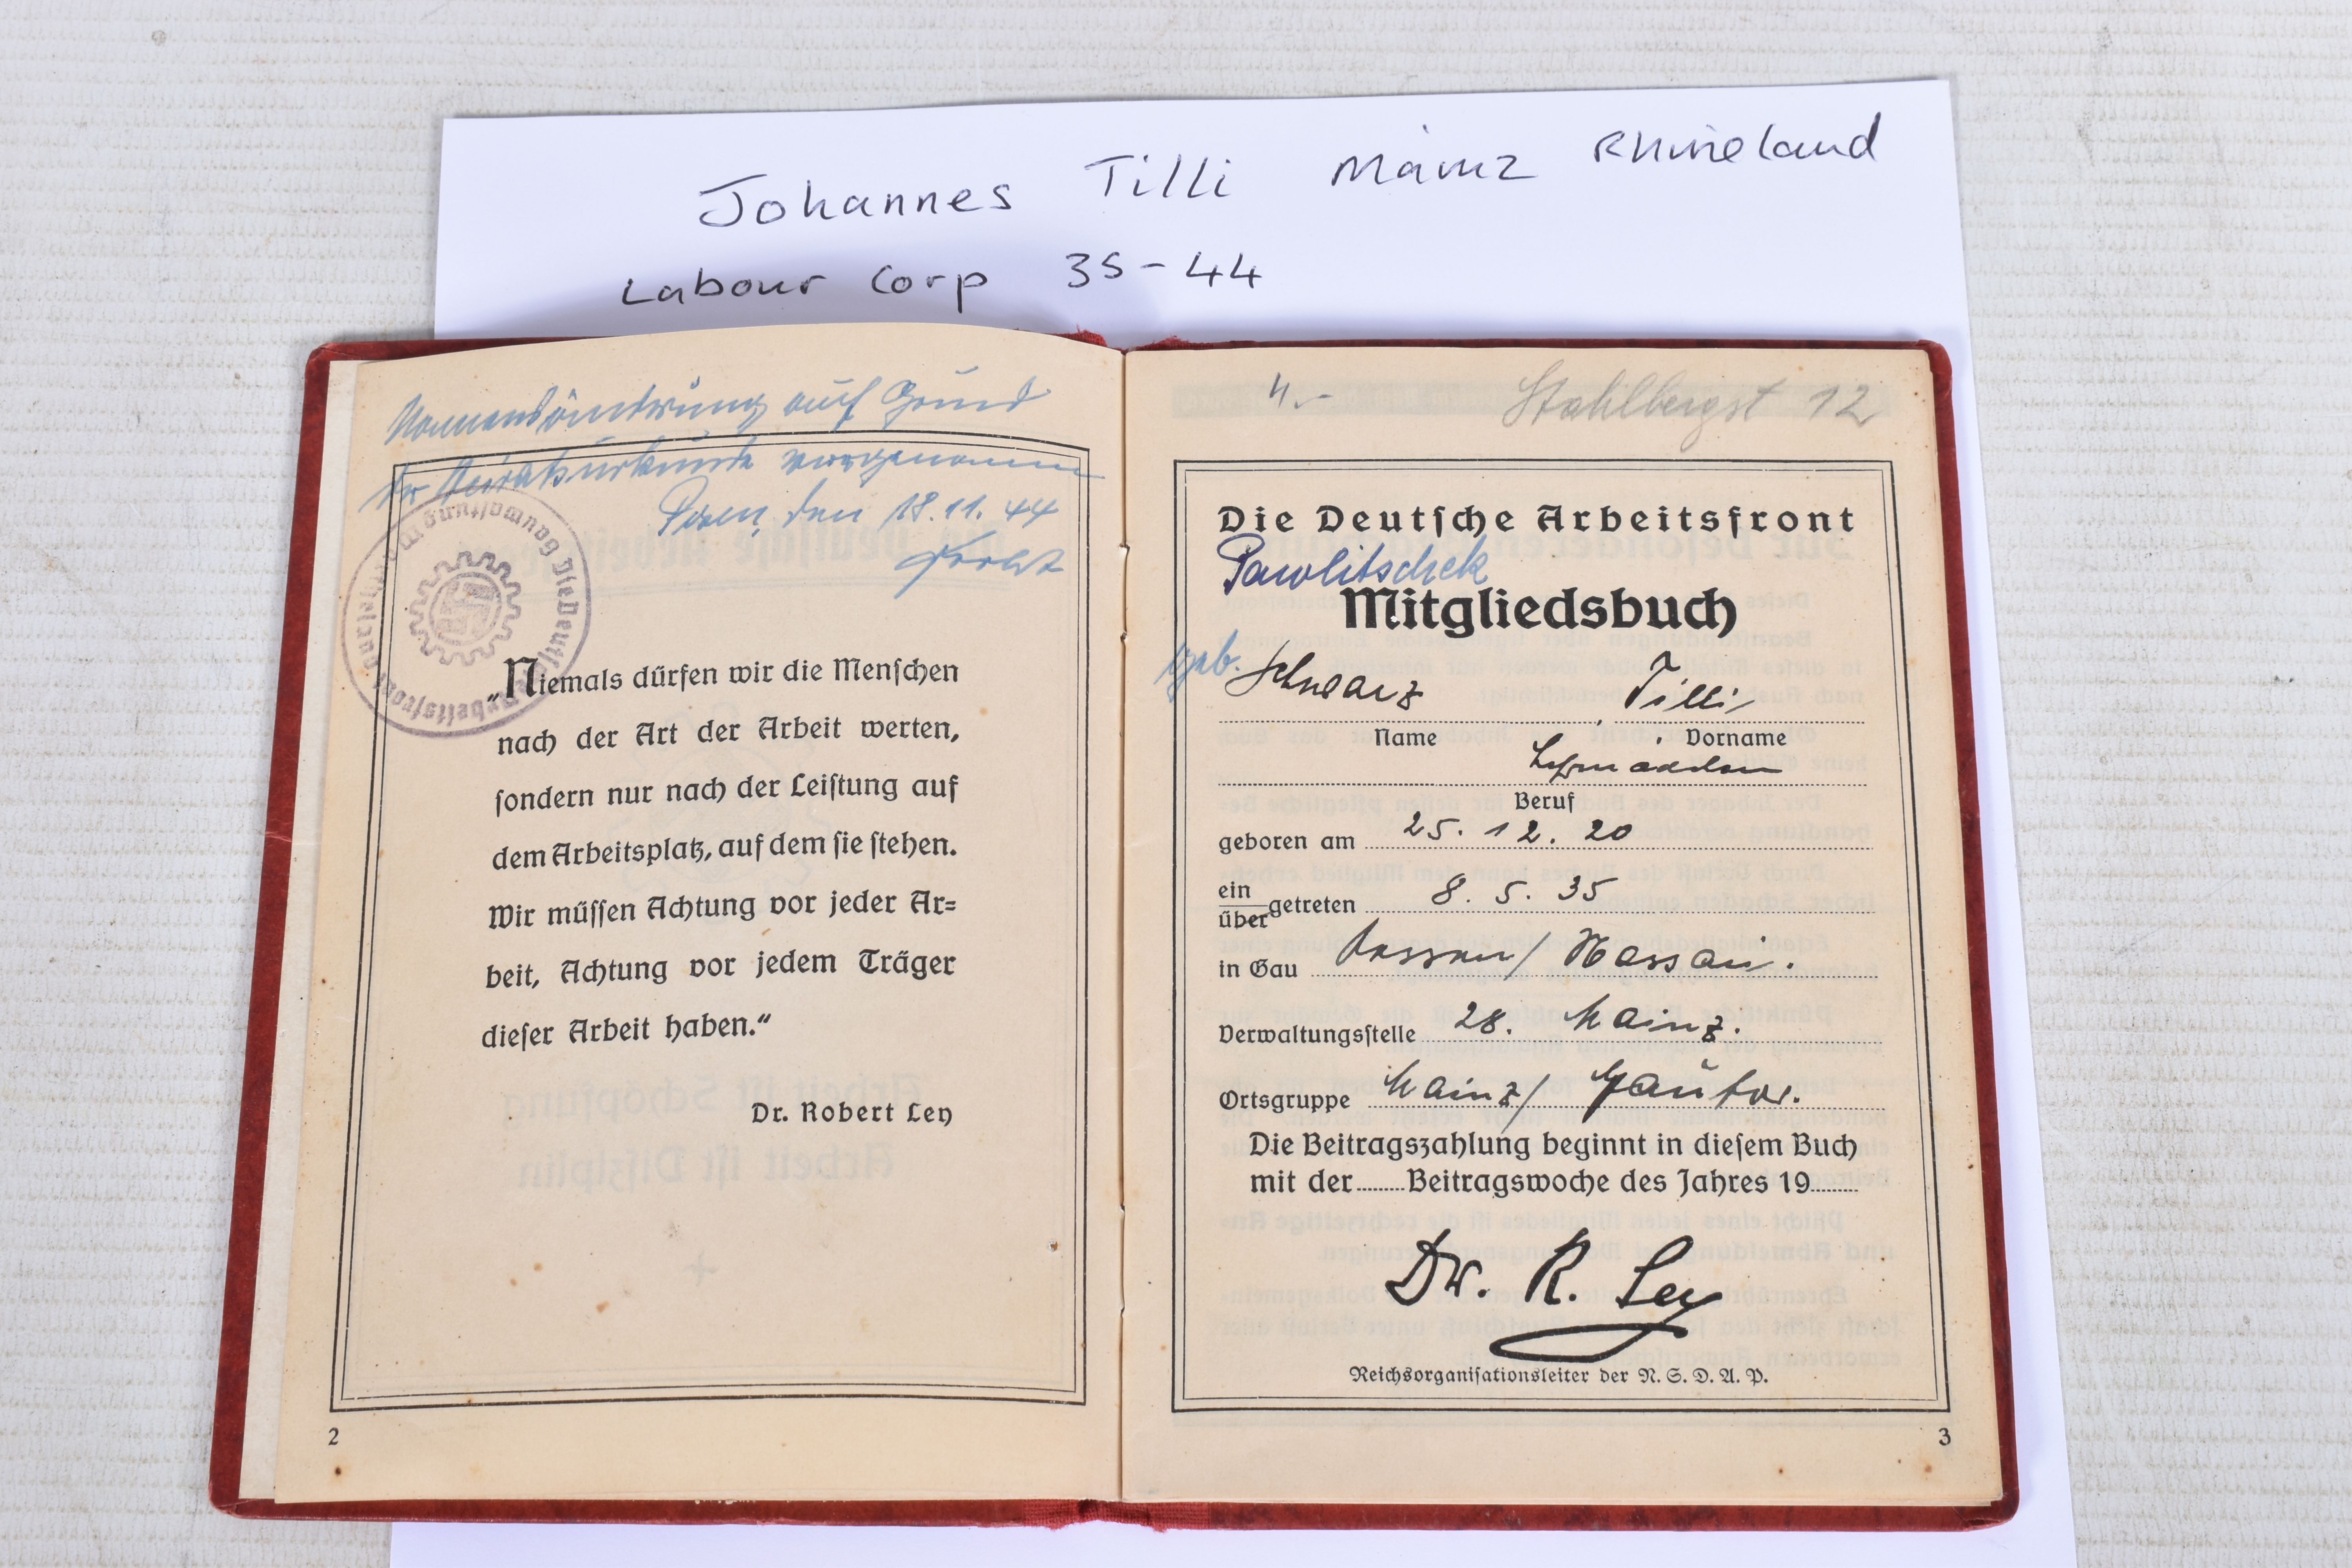 Johannes Tilli Mainz Rhineland
Labour Corp 35-44
Namensänderung auf Grund
der Heiratsurkunde vorgenommen
Posen, den 18.11.44
Die Deutsche Arbeitsfront
„Niemals dürfen wir die Menschen
nach der Art der Arbeit werten,
sondern nur nach der Leistung auf
dem Arbeitsplatz, auf dem sie stehen.
Wir müssen Achtung vor jeder Ar=
beit, Achtung vor jedem Träger
dieser Arbeit haben.“
Dr. Robert Ley
2
4.-
Stahlbergst 12
Die Deutsche Arbeitsfront
Pawlitschek
Mitgliedsbuch
geb. Schwarz Tilli
Name Vorname
Beruf
geboren am 25. 12. 20
ein
über getreten 8. 5. 35
in Gau Hessen/ Nassau.
Verwaltungsstelle 28. Mainz.
Ortsgruppe Mainz/ Gautor.
Die Beitragszahlung beginnt in diesem Buch
mit der........Beitragswoche des Jahres 19........
Dr. R. Ley
Reichsorganisationsleiter der N. S. D. A. P.
3